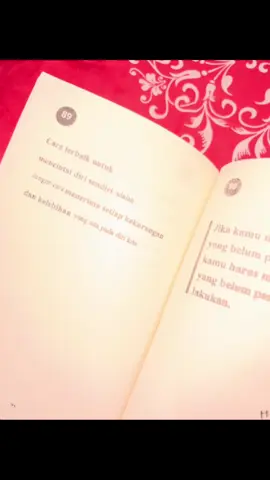 89
Cara terbaik untuk
mencintai diri sendiri adalah
dengan cara menerima setiap kekurangan
dan kelebihan yang ada pada diri kita
Jika kamu
yang belum
kamu harus
yang belum
lakukan.